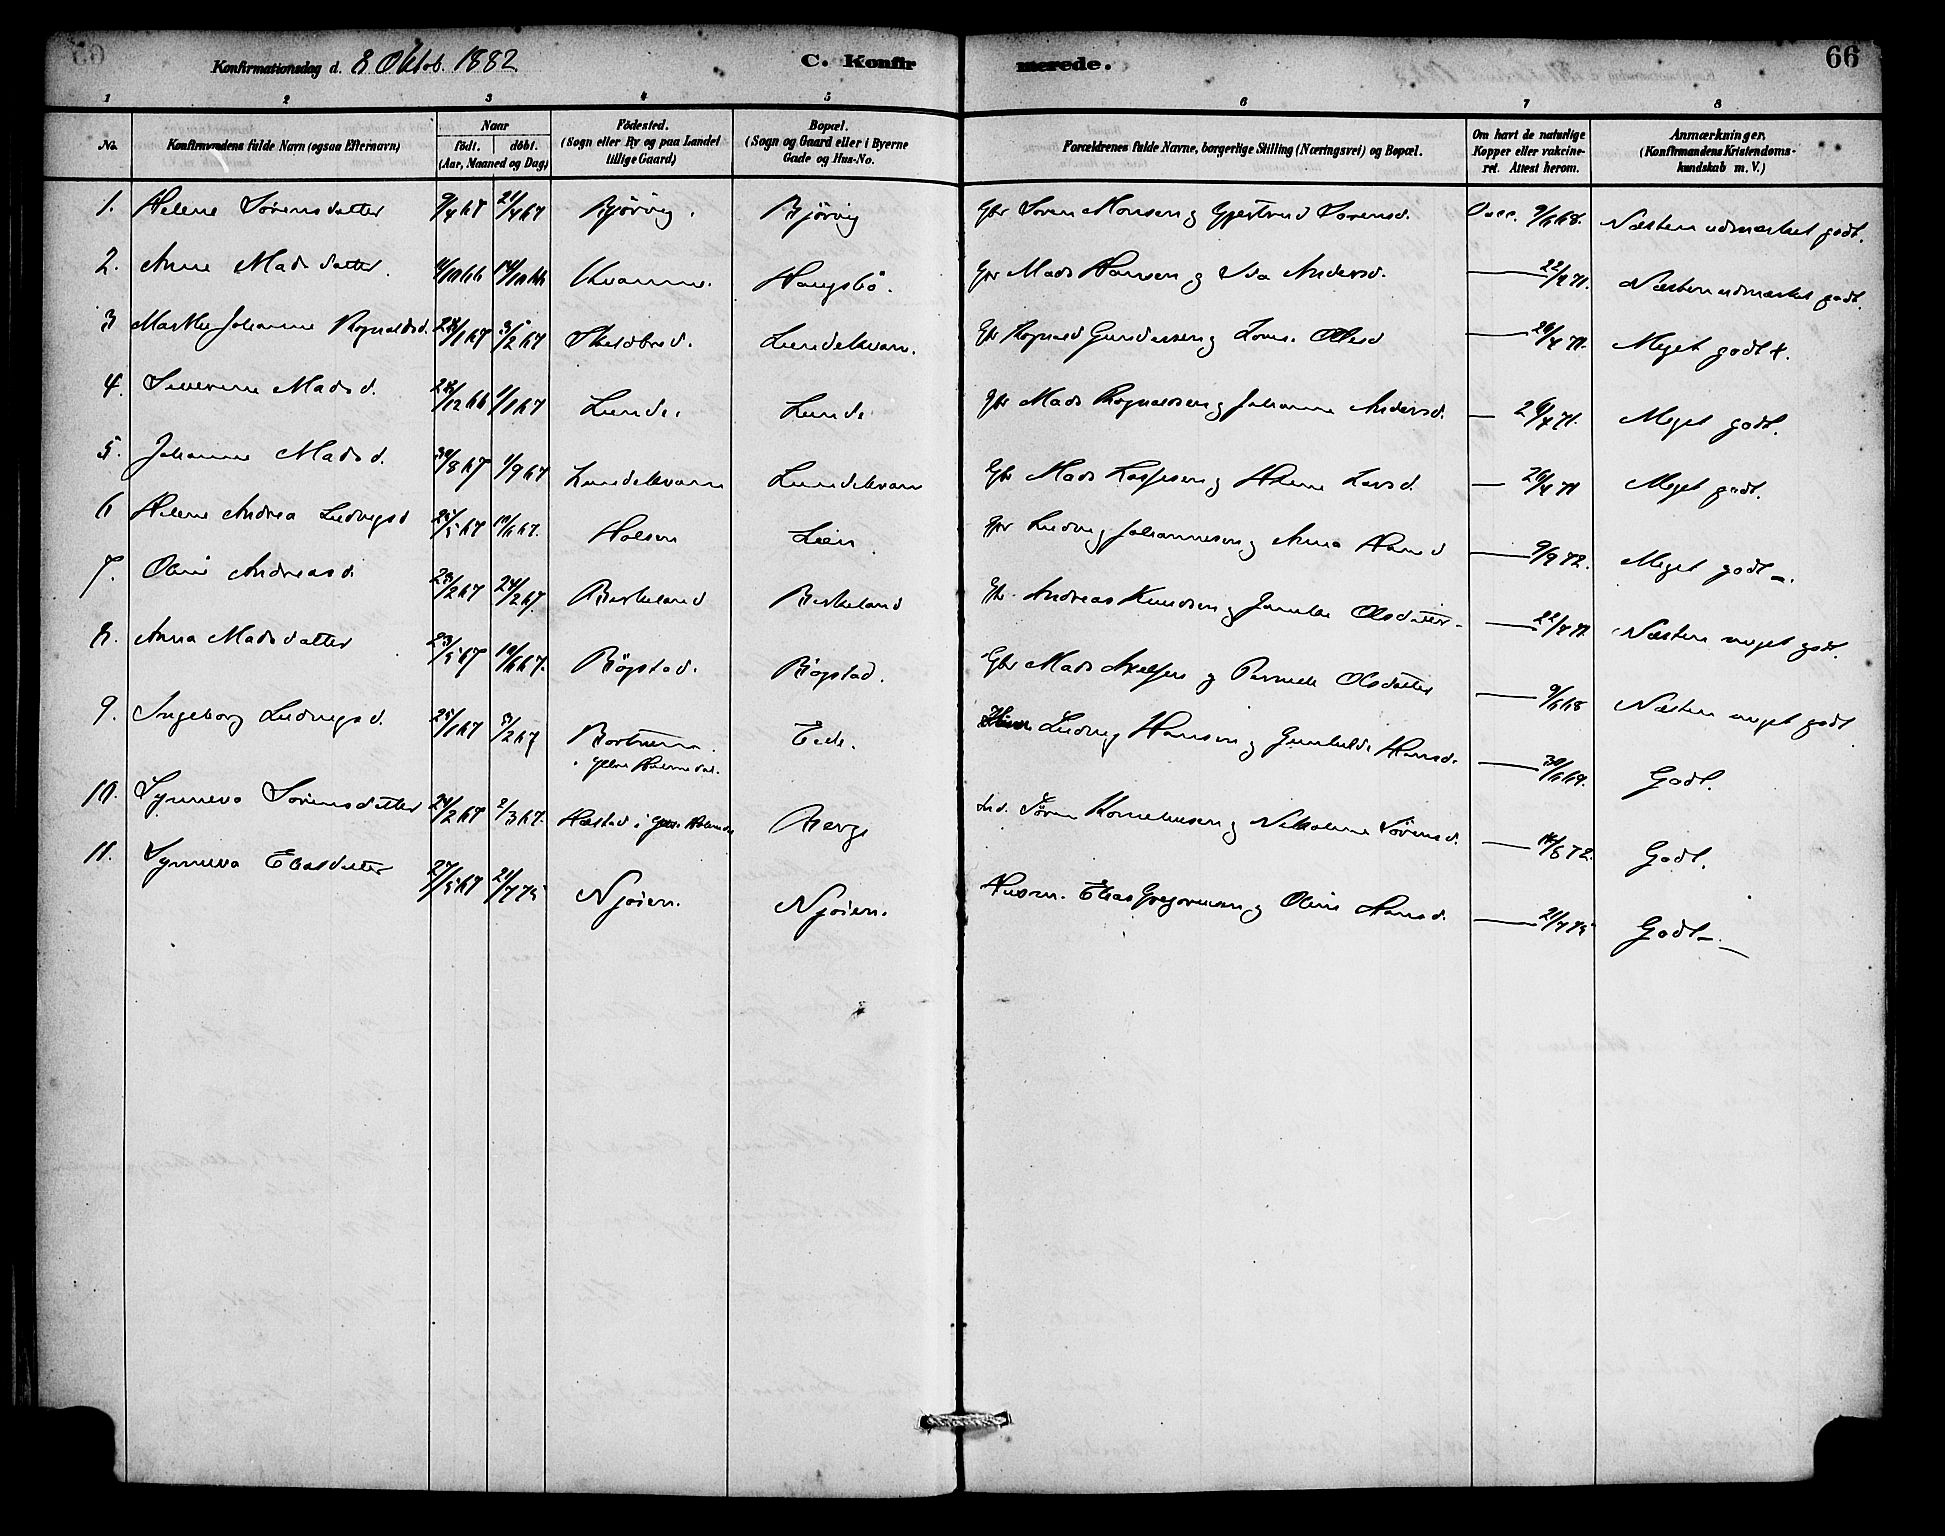 Konfirmationsdag d. 8 Oktob. 1882
C. Konfir merede. 66
1 2 3 4 5 6 7 8
No. Konfirmandens fulde Navn (ogsaa Efternavn) Naar födt. döbt. (Aar, Maaned og Dag) Födested. (Sogn eller By og paa Landet tillige Gaard) Bopæl. (Sogn og Gaard eller i Byerne Gade og Hus-No. Forældrenes fulde Navne, borgerlige Stilling (Næringsvei) og Bopæl. Om havt de naturlige Kopper eller vakcineret. Attest herom. Anmærkninger. (Konfirmandens Kristendomskundskab m. V.)
1. Helene Sørensdatter 9/4 67 21/4 67 Bjørvig. Bjørvig Gbr Søren Monsen og Gjertrud Sørensd. Vacc. 9/6 68. Næsten udmærket godt.
2. Anne Madsdatter. 4/10 66 14/10 66 Kvamme. Haugsbö. Gbr Mads Hansen og Andersd. 22/ 71. Næsten udmærket godt.
3 Marthe Johanne Rognaldsd. 28/1 67 3/2 67 Lundekvam. Gbr Rognald Gundersen og Olsd 26/4 71. Meget godt +.
4. Severine Madsd. 28/12 66 1/1 67 Lunde. Lunde Gbr Mads Rognaldsen og Johanne Andersd. 26/4 71. Meget godt.
5. Johanne Madsd. 8 67 1/9 67 Lundekvam Lundekvam Gbr Mads og Larsd. 26/4 71 Meget godt.
6 Helene Andrea Ludvigsd 25/5 67 10/6 67. Holsen Lien. Gbr Ludvig Johannesen og Anna Hansd 9/9 72. Meget godt -.
7. Oline Andreasd. 23/2 67 24/2 67. Birkeland Birkeland Gbr. Andreas Knudsen og Olsdatter. 22/4 71 Næsten meget godt.
8. Anna Madsdatter 23/5 67 10/6 67. Bögstad. Bögstad. Gbr Mads og Pernele Olsdatter 9/6 68 Næsten meget godt
9. Ingeborg Ludvigsd. 25/1 67 3/2 67 Ludvig Hansen og Gunhilde Hansd. 30/6 69. Godt.
10. Synneva Sørensdatter 24/2 67 2/3 67. Hæstad i Berge Ind. Søren Korneliusen og Nikoline Sørensd. 72. Godt.
11. Synneva Eliasdatter 27/5 67 21/7 75 Njøien. Njøien. Husm. Elias Gregoriusen og Oline Hansd. 21/7 75 Godt -.